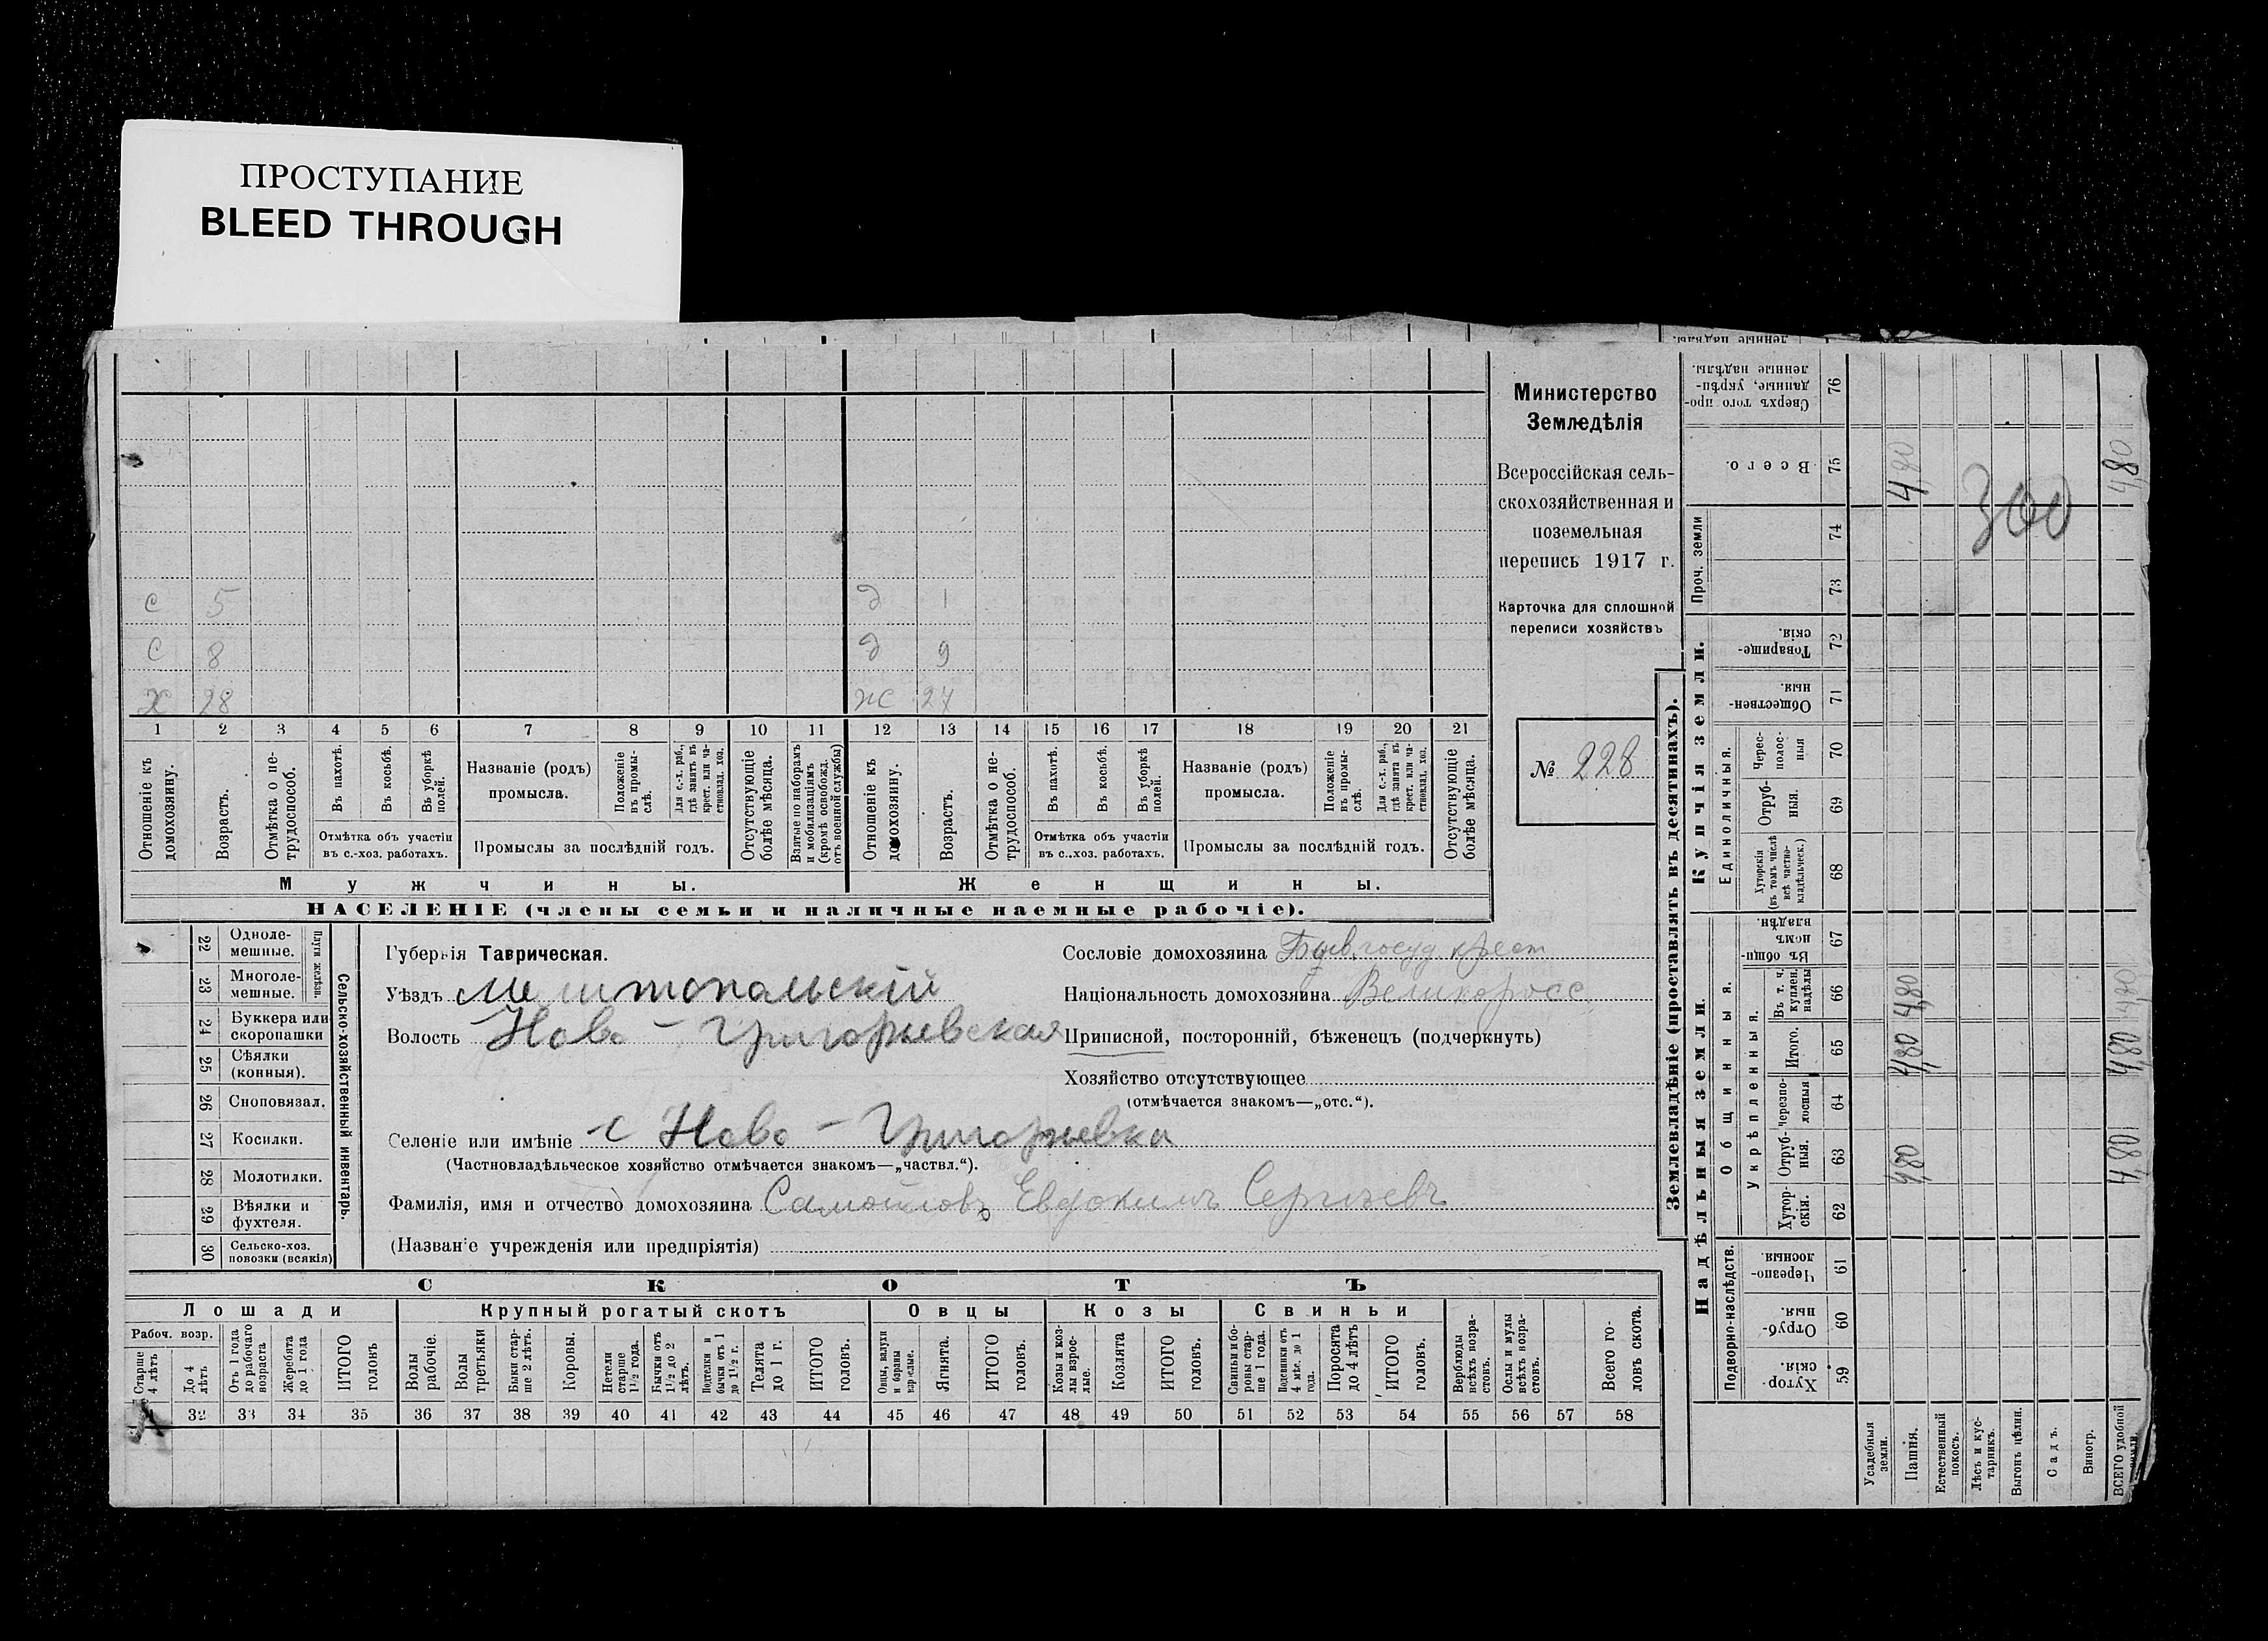 ПРОСТУПАНИЕ
BLEED THROUGH
Министерство
Земледѣлія
Всероссійская сель-
скохозяйственная и
поземельная
перепись 1917 г.
Карточка для сплошной
переписи хозяйствъ
№ 228
с 5 д 1
с 8 д 9
х 28 ж 27
1 2 3 4 5 6 7 8 9 10 11 12 13 14 15 16 17 18 19 20 21
Отношеніе къ домохозяину.
Возрастъ.
Отмѣтка о не-трудоспособ.
Въ пахотѣ.
Въ косьбѣ.
Въ уборкѣ полей.
Отмѣтка объ участіи
въ с.-хоз. работахъ.
Названіе (родъ)
промысла.
Положеніе въ промы-слѣ.
Для с.-х. раб., гдѣ занятъ въ крест. или ча-стновлад. хоз.
Промыслы за послѣдній годъ.
Отсутствующіе болѣе мѣсяца.
Взятые по наборамъ и мобилизаціямъ (кромѣ освобожд. отъ военной службы)
Отношеніе къ домохозяину.
Возрастъ.
Отмѣтка о не-трудоспособ.
Въ пахотѣ.
Въ косьбѣ.
Въ уборкѣ полей.
Отмѣтка объ участіи
въ с..хоз. работахъ.
Названіе (родъ)
промысла.
Положеніе въ промы-слѣ.
Для с.-х. раб., гдѣ занята въ крест. или ча-стновлад. хоз.
Промыслы за послѣдній годъ.
Отсутствующіе болѣе мѣсяца.
Мужчины. Женщины.
НАСЕЛЕНІЕ (члены семьи и наличные наемные рабочіе).
22 Одноле-мешные.
23 Многоле-мешные.
Плуги желѣзн.
24 Буккера или скоропашки
25 Сѣялки (конныя).
26 Сноповязал.
27 Косилки.
28 Молотилки.
29 Вѣялки и фухтеля.
30 Сельско-хоз. повозки (всякія)
Сельско-хозяйственный инвентарь.
Губернія Таврическая.
Уѣздъ Мелитопольскій
Волость Ново - Григорьевская
Селеніе или имѣніе с Ново - Григорьевка
(Частновладѣльческое хозяйство отмѣчается знакомъ—„частвл.“).
Фамилія, имя и отчество домохозяина Самойловъ Евдокимъ Сергѣевъ
(Названіе учрежденія или предпріятія)
Сословіе домохозяина Быв. госуд. крест
Національность домохозяина Великоросс.
Приписной, посторонній, бѣженецъ (подчеркнуть)
Хозяйство отсутствующее
(отмѣчается знакомъ—„отс.“).
СКОТЪ
Лошади Крупный рогатый скотъ Овцы Козы Свиньи
Рабоч. возр.
Старше 4 лѣтъ
До 4 лѣтъ
Отъ 1 года до рабочаго возраста
Жеребята до 1 года
ИТОГО головъ
Волы рабочіе.
Волы третьяки
Быки стар-ше 2 лѣтъ.
Коровы.
Нетели старше 1½ года.
Бычки отъ 1½ до 2 лѣтъ.
Подтелки и бычки отъ 1 до 1½ г.
Телята до 1 г.
ИТОГО головъ.
Овцы, валухи и бараны взрослые.
Ягнята.
ИТОГО головъ.
Козы и коз-лы взрос-лые.
Козлята
ИТОГО головъ.
Свиньи и бо-ровы стар-ше 1 года.
Подсвинки отъ 4 мѣс. до 1 года.
Поросята до 4 лѣтъ
ИТОГО головъ.
Верблюды всѣхъ возра-стовъ.
Ослы и мулы всѣхъ возра-стовъ.
Всего го-ловъ скота.
32 33 34 35 36 37 38 39 40 41 42 43 44 45 46 47 48 49 50 51 52 53 54 55 56 57 58
Землевладѣніе (проставлять въ десятинахъ).
Купчія земли.
Проч. земли
Сверхъ того про-данные, укрѣп-ленные надѣлы. 76
Всего. 75 4,80 4,80
300
74
73
Товарище-скія. 72
Обществен-ныя 71
Единоличныя.
Черес-полос-ныя 70
Отруб-ныя. 69
Хуторскія (въ томъ числѣ всѣ частно-владѣльческ.) 68
Надѣльныя земли.
Общинныя.
Укрѣпленныя.
Въ общи-номъ владѣн. 67
Въ т. ч. куплен. надѣлы 66 4,80 4,80
Итого. 65 4,80 4,80
Черезпо-лосныя 64
Отруб-ныя. 63 4,80 4,80
Хутор-скія. 62
Подворно-наслѣдств.
Черезпо-лосныя 61
Отруб-ныя. 60
Хутор-скія. 59
Усадебныя земли.
Пашня.
Естественный покосъ.
Лѣсъ и кус-тарникъ.
Выгонъ цѣлин.
Садъ.
Виногр.
ВСЕГО удобной земли.